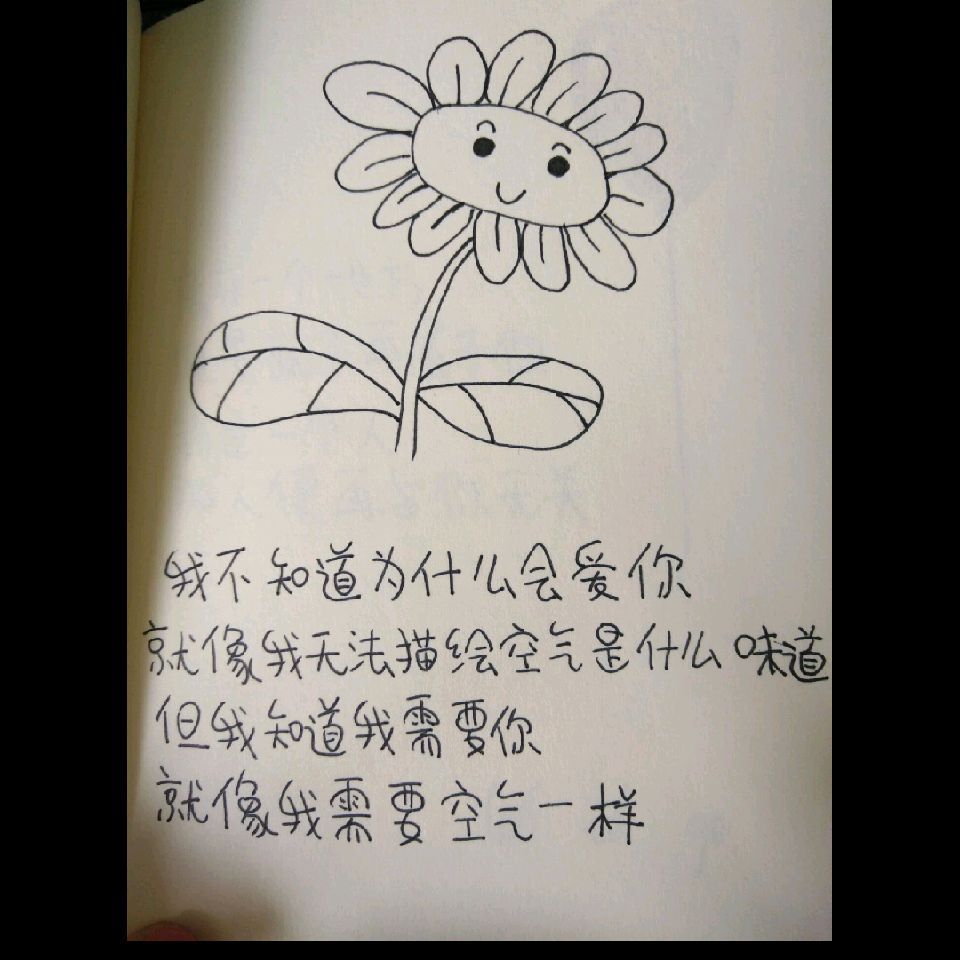 我不知道为什么会爱你
就像我无法描绘空气是什么味道
但我知道我需要你
就像我需要空气一样